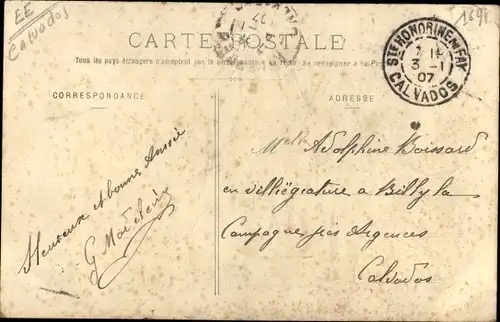 EE
Calvados
1698
CARTE POSTALE
Tous les pays étrangers n'acceptent pas la correspondance au recto, se renseigner à la Poste
CORRESPONDANCE
ADRESSE
STE HONORINE DU FAY
3 - 1
07
CALVADOS
Heureux et bonne Année
G
Melle Adolphine Boissard
en villégiature a Billy la
Campagne près Argences
Calvados